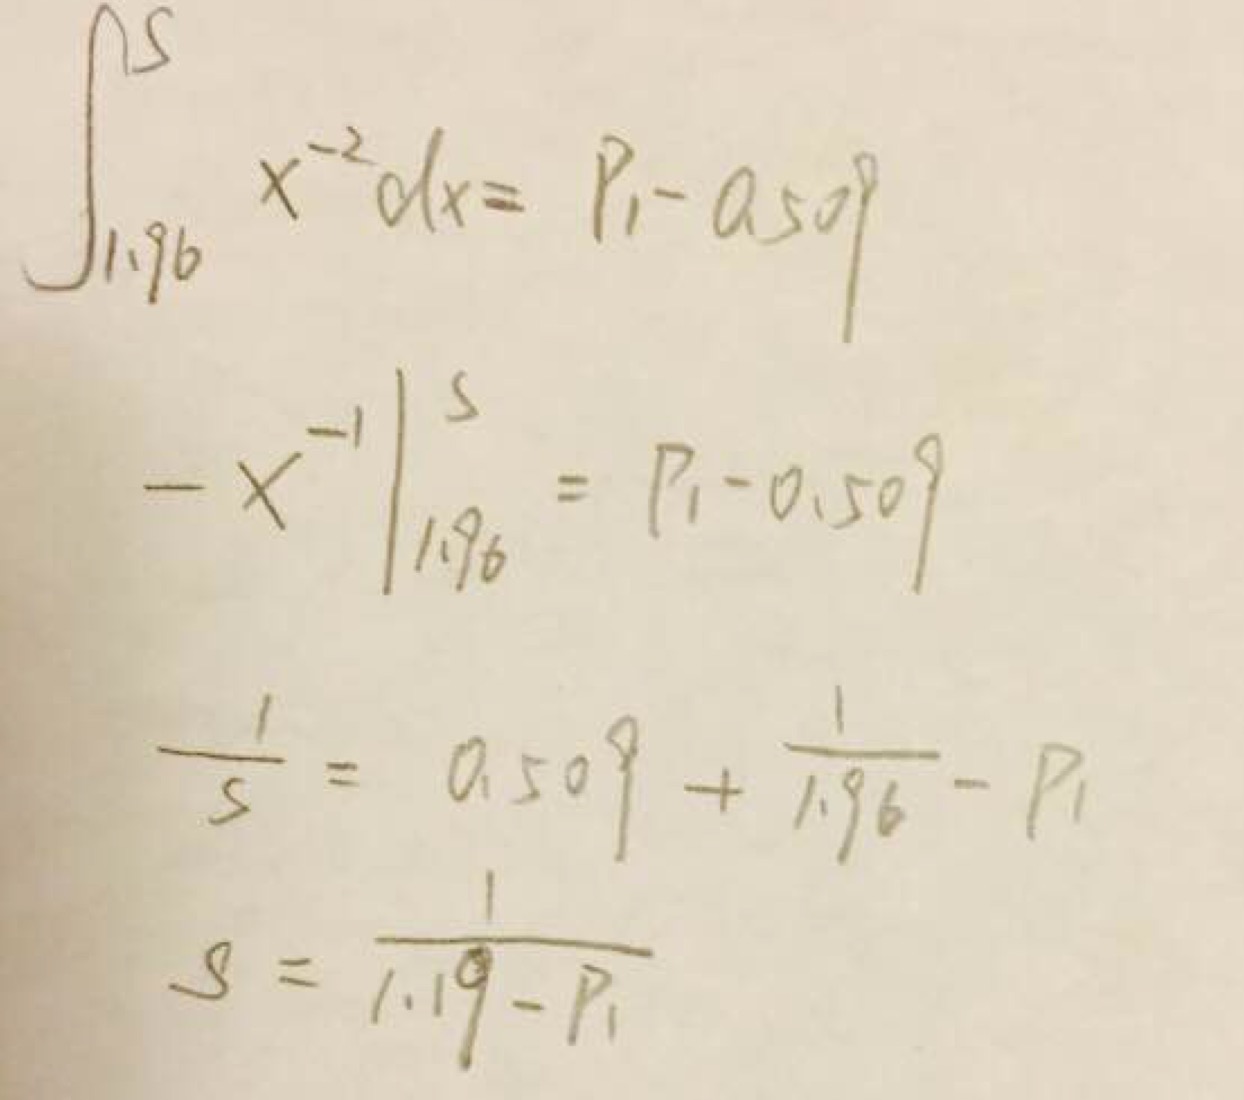 ∫_{1.96}^{S} x^{-2} dx = P₁ - 0.509
- x^{-1} |_{1.96}^{S} = P₁ - 0.509
1/S = 0.509 + 1/1.96 - P₁
S = 1/(1.19 - P₁)